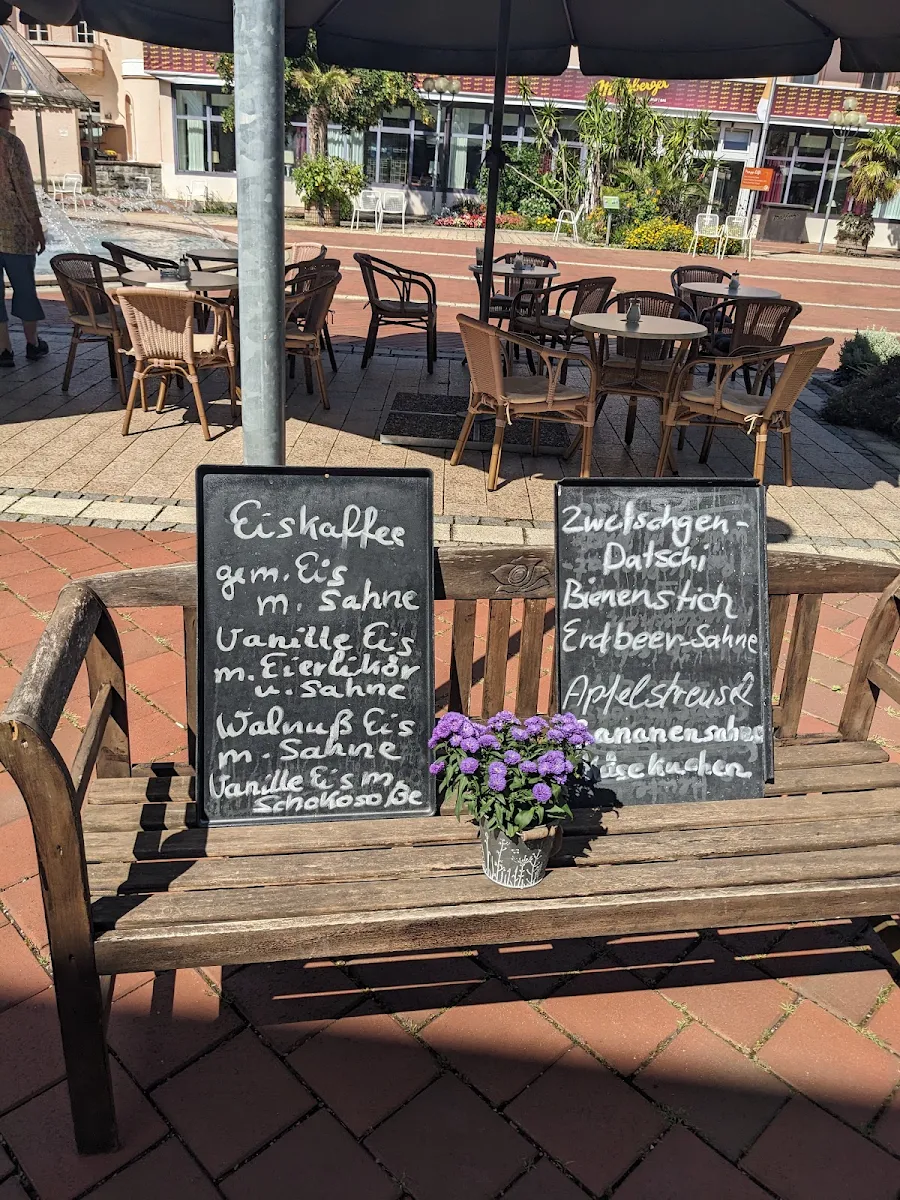 Eiskaffee
gem. Eis
m. Sahne
Vanille Eis
m. Eierlikör
u. Sahne
Walnuß Eis
m. Sahne
Vanille Eis m.
Schokosoße
Zwetschgen-
Datschi
Bienenstich
Erdbeer-Sahne
Apfelstreusel
ananensahne
äsekuchen